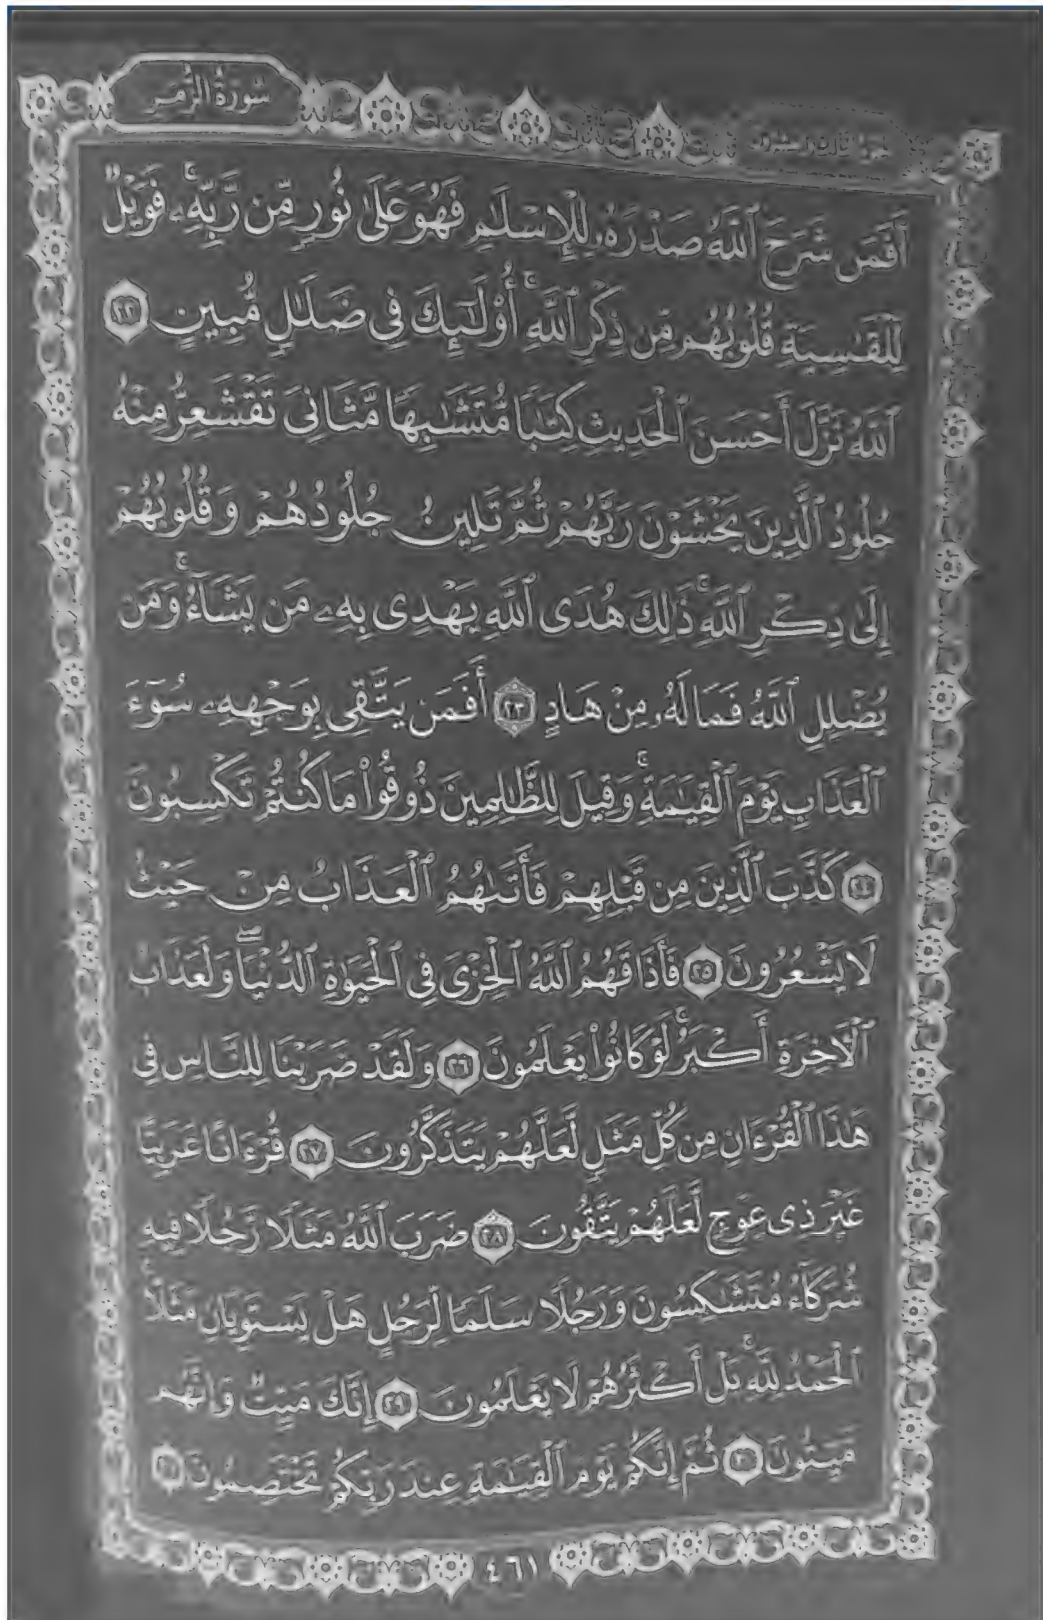 سُورَةُ الزُّمَرِ
أَفَمَن شَرَحَ ٱللَّهُ صَدْرَهُۥ لِلْإِسْلَٰمِ فَهُوَ عَلَىٰ نُورٍ مِّن رَّبِّهِۦۚ فَوَيْلٌ
لِّلْقَٰسِيَةِ قُلُوبُهُم مِّن ذِكْرِ ٱللَّهِۚ أُو۟لَٰٓئِكَ فِى ضَلَٰلٍ مُّبِينٍ ٢٢
ٱللَّهُ نَزَّلَ أَحْسَنَ ٱلْحَدِيثِ كِتَٰبًا مُّتَشَٰبِهًا مَّثَانِىَ تَقْشَعِرُّ مِنْهُ
جُلُودُ ٱلَّذِينَ يَخْشَوْنَ رَبَّهُمْ ثُمَّ تَلِينُ جُلُودُهُمْ وَقُلُوبُهُمْ
إِلَىٰ ذِكْرِ ٱللَّهِۚ ذَٰلِكَ هُدَى ٱللَّهِ يَهْدِى بِهِۦ مَن يَشَآءُۚ وَمَن
يُضْلِلِ ٱللَّهُ فَمَا لَهُۥ مِنْ هَادٍ ٢٣ أَفَمَن يَتَّقِى بِوَجْهِهِۦ سُوٓءَ
ٱلْعَذَابِ يَوْمَ ٱلْقِيَٰمَةِۚ وَقِيلَ لِلظَّٰلِمِينَ ذُوقُوا۟ مَا كُنتُمْ تَكْسِبُونَ
٢٤ كَذَّبَ ٱلَّذِينَ مِن قَبْلِهِمْ فَأَتَىٰهُمُ ٱلْعَذَابُ مِنْ حَيْثُ
لَا يَشْعُرُونَ ٢٥ فَأَذَاقَهُمُ ٱللَّهُ ٱلْخِزْىَ فِى ٱلْحَيَوٰةِ ٱلدُّنْيَاۖ وَلَعَذَابُ
ٱلْءَاخِرَةِ أَكْبَرُۚ لَوْ كَانُوا۟ يَعْلَمُونَ ٢٦ وَلَقَدْ ضَرَبْنَا لِلنَّاسِ فِى
هَٰذَا ٱلْقُرْءَانِ مِن كُلِّ مَثَلٍ لَّعَلَّهُمْ يَتَذَكَّرُونَ ٢٧ قُرْءَانًا عَرَبِيًّا
غَيْرَ ذِى عِوَجٍ لَّعَلَّهُمْ يَتَّقُونَ ٢٨ ضَرَبَ ٱللَّهُ مَثَلًا رَّجُلًا فِيهِ
شُرَكَآءُ مُتَشَٰكِسُونَ وَرَجُلًا سَلَمًا لِّرَجُلٍ هَلْ يَسْتَوِيَانِ مَثَلًاۚ
ٱلْحَمْدُ لِلَّهِۚ بَلْ أَكْثَرُهُمْ لَا يَعْلَمُونَ ٢٩ إِنَّكَ مَيِّتٌ وَإِنَّهُم
مَّيِّتُونَ ٣٠ ثُمَّ إِنَّكُمْ يَوْمَ ٱلْقِيَٰمَةِ عِندَ رَبِّكُمْ تَخْتَصِمُونَ ٣١
٤٦١